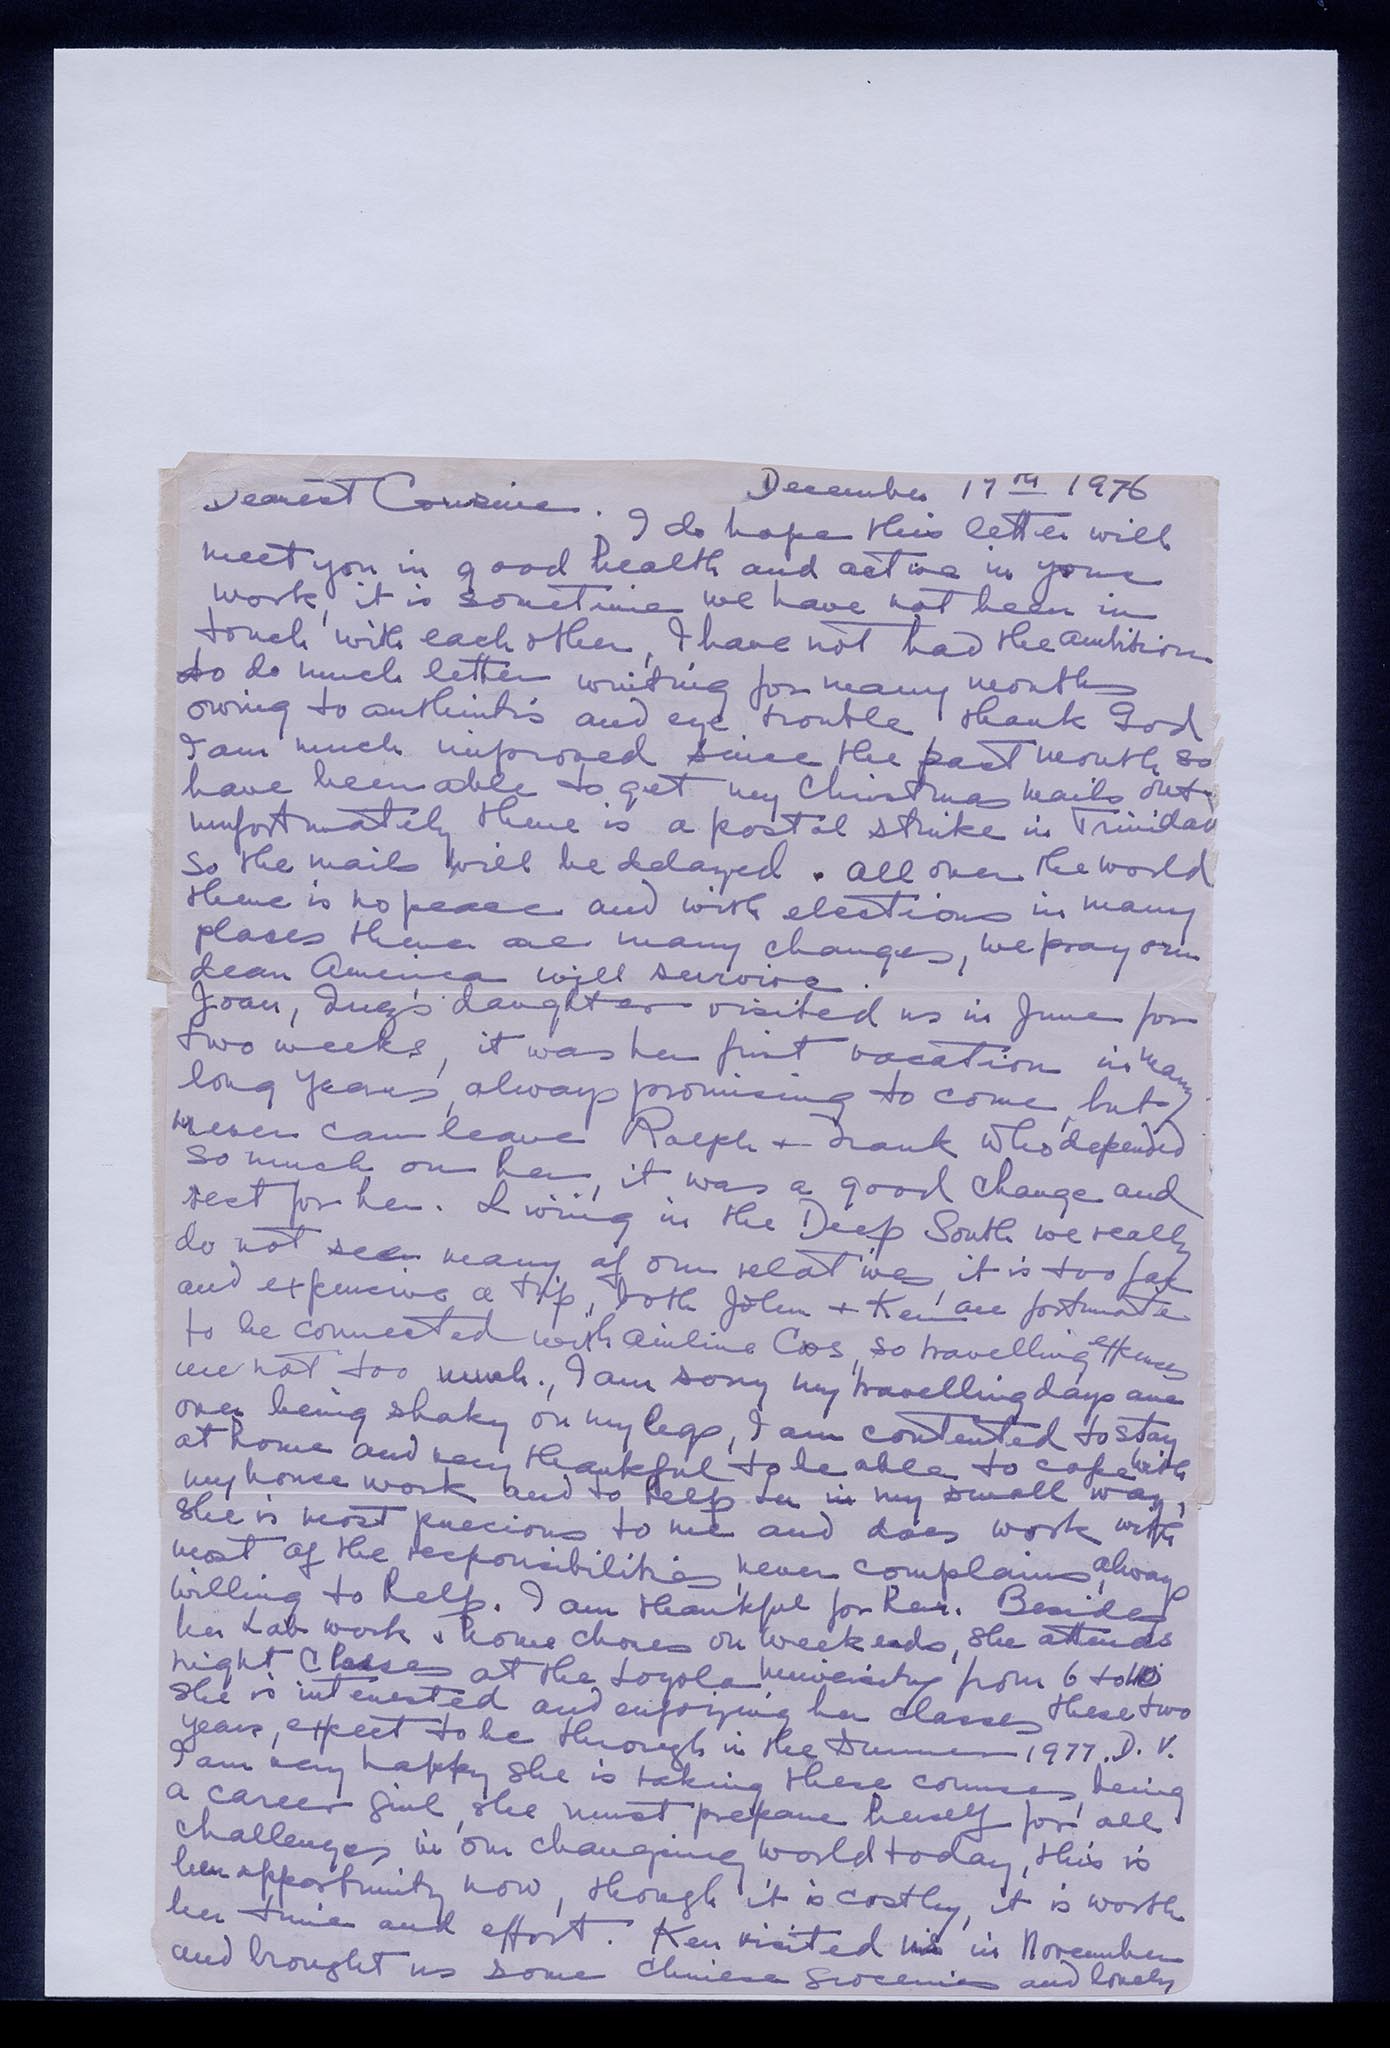 December 17th 1976
Dearest Cousine.
I do hope this letter will
meet you in good health and active in your
work, it is sometime we have not been in
touch with each other, I have not had the ambition
to do much letter writing for many months
owing to arthritis and eye trouble thank God
I am much improved since the past month so
have been able to get my Christmas mails out
unfortunately there is a postal strike in Trinidad
so the mails will be delayed. All over the world
there is no peace and with elections in many
places there are many changes, we pray our
dear America will survive.
Joan, Inez's daughter visited us in June for
two weeks, it was her first vacation in many
long years, always promising to come, but
never can leave Ralph + Frank who depended
so much on her, it was a good change and
rest for her. Living in the Deep South we really
do not see many of our relatives, it is too far
and expensive a trip, both John + Ken are fortunate
to be connected with airline Cos, so travelling expences
are not too much., I am sorry my travelling days are
over being shaky on my legs, I am contented to stay
at home and very thankful to be able to cope with
my house work and to help in my small way,
she is most precious to me and does work with
most of the responsibilities, never complains, always
willing to help. I am thankful for her. Besides
her Lab work & home chores on weekends, she attends
night Classes at the Loyola University from 6 to 10
she is interested and enjoying her classes these two
years, expect to be through in the Summer 1977. D. V.
I am very happy she is taking these courses, being
a career girl, she must prepare herself for all
challenges in our changing world today, this is
her opportunity now, though it is costly, it is worth
her time and effort. Ken visited us in November
and brought us some Chinese groceries and lovely